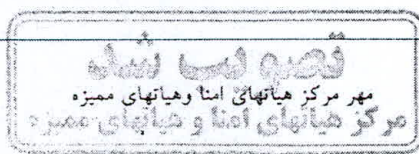 تصویب شد
مهر مرکز هیاتهای امنا وهیاتهای ممیزه
مرکز هیأتهای امنا و هیأتهای ممیزه